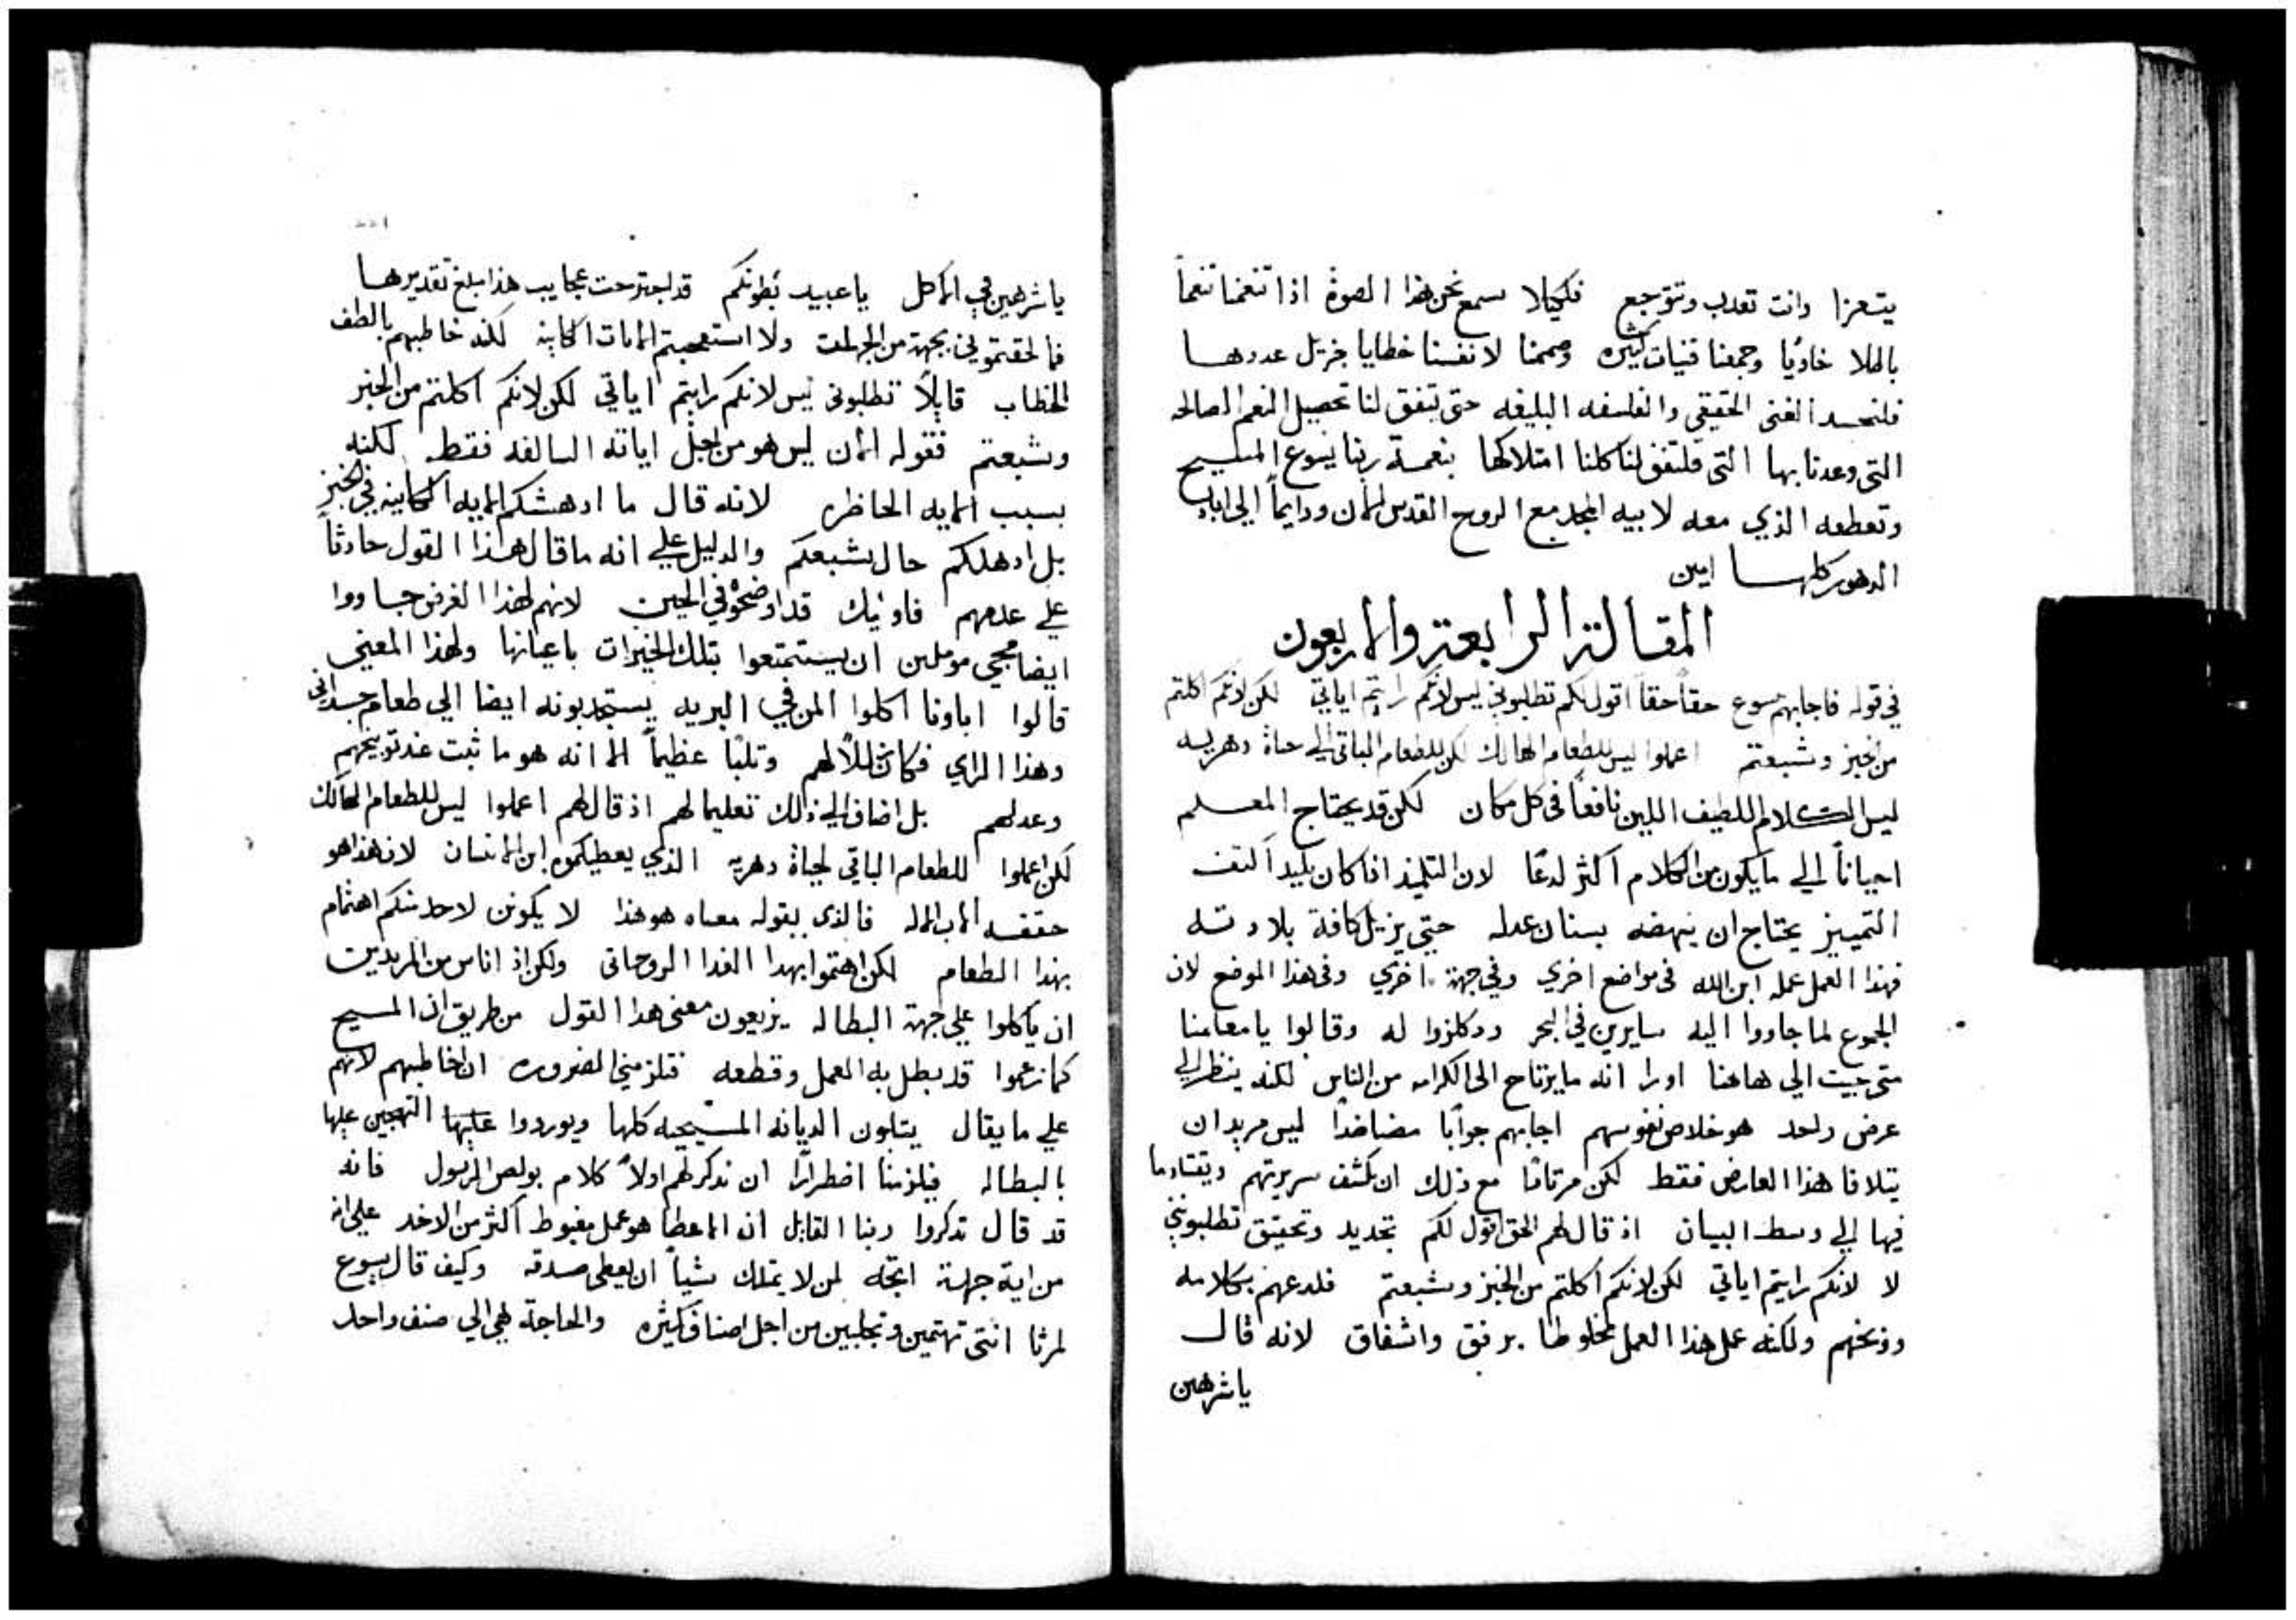 يتعزا وانت تعدب وتتوجع فلكيلا نسمع نحن هذا الصوة اذا تنغمنا تنغماً
باطلا خاويا وجمعنا قنيات كثيره وصممنا لانفسنا خطايا جزيل عددها
فلنحسد الغنى الحقيقي والفلسفه البليغه حتى يتفق لنا تحصيل النعم الصالحه
التى وعدنا بها التى فليتفق لنا كلنا امتلاكها بنعمة ربنا يسوع المسيح
وتعطفه الذي معه لابيه المجد مع الروح القدس الان ودايماً الى اباد
الدهور كلها امين
المقالة الرابعة والاربعون
في قوله فاجابهم يسوع حقاً حقاً اقول لكم تطلبوني ليس لانكم رايتم اياتي لكن لانكم اكلتم
من الخبز وشبعتم اعملوا ليس للطعام الهالك لكن للطعام الباقي الى حياة دهريه
ليس الكلام اللطيف اللين نافعاً في كل مكان لكن قد يحتاج المعلم
احياناً الي ما يكون من الكلام اكثر لدعاً لان التلميذ اذا كان بليداً
التمييز يحتاج ان ينهضه بسنان عدله حتي يزيل كافة بلادته
فهذا العمل عمله ابن الله في مواضع اخري وفي جهة اخري وفي هذا الموضع لان
الجموع لما جاووا اليه سايرين في البحر ودكلزوا له وقالوا يا معلمنا
متى جيت الي هاهنا اورا انه ما يرتاح الى الكرامه من الناس لكنه ينظر الي
عرض واحد هو خلاص نفوسهم اجابهم جواباً مضاضداً ليس مريدا ان
يتلافا هذا العارض فقط لكن مرتاداً مع ذلك ان يكشف سريرتهم ويقتاد ما
فيها الي وسط البيان اذ قال لهم الحق اقول لكم بتحديد وتحقيق تطلبوني
لا لانكم رايتم اياتي لكن لانكم اكلتم من الخبز وشبعتم فلدعهم بكلامه
ووبخهم ولكنه عمل هذا العمل مخلوطا برفق واشفاق لانه قال
يا شرهين
يا شرهين في الماكل يا عبيد بطونكم قد اجترحت عجايب هذا مبلغ تقديرها
فما لحقتموني بجهة من الجهات ولا استعجبتم الايات الكاينه لكنه خاطبهم بالطف
الخطاب قايلاً تطلبوني ليس لانكم رايتم اياتي لكن لانكم اكلتم من الخبز
وشبعتم فقوله الان ليس هو من اجل اياته السالفه فقط لكنه
بسبب الايه الحاظره لانه قال ما ادهشكم الايه الكاينه في الخبز
بل ادهلكم حال شبعكم والدليل علي انه ما قال هذا القول حادثاً
علي عدمهم فاوليك قد اوضحوه في الحين لانهم لهذا الغرض جاووا
ايضا مجي موملين ان يستمتعوا بتلك الخيرات باعيانها ولهذا المعني
قالوا اباونا اكلوا المن في البريه يستجدبونه ايضا الي طعام جسداني
وهذا الراي فكان ثللاً لهم وثلبًا عظيماً الا انه هو ما ثبت عند توبيخهم
وعدلهم بل اضاف الي ذلك تعليما لهم اذ قال لهم اعملوا ليس للطعام الهالك
لكن اعملوا للطعام الباقي لحياة دهريه الذي يعطيكموه ابن الانسان لان هذا هو
حققه الاب الاله فالذي يقوله معناه هو هذا لا يكونن لاحد منكم اهتمام
بهذا الطعام لكن اهتموا بهدا الغدا الروحاني ولكن اذ اناس من المريدين
ان ياكلوا علي جهة البطاله يزيعون معني هذا القول من طريق ان المسيح
كما زعموا قد بطل به العمل وقطعه فتلزمني الضروره ان اخاطبهم لانهم
علي ما يقال يثلبون الديانه المسيحيه كلها ويوردوا عليها التهجين عليها
بالبطاله فيلزمنا اضطرارًا ان ندكر لهم اولاً كلام بولص الرسول فانه
قد قال تدكروا ربنا القايل ان الاعطا هو عمل مغبوط اكثر من الاخد علي انه
من اية جهة اتجه لمن لا يمتلك شياً ان يعطي صدقه وكيف قال يسوع
لمرثا انتي تهتمين وتجلبين من اجل اصناف كثيره والحاجة هي الي صنف واحد